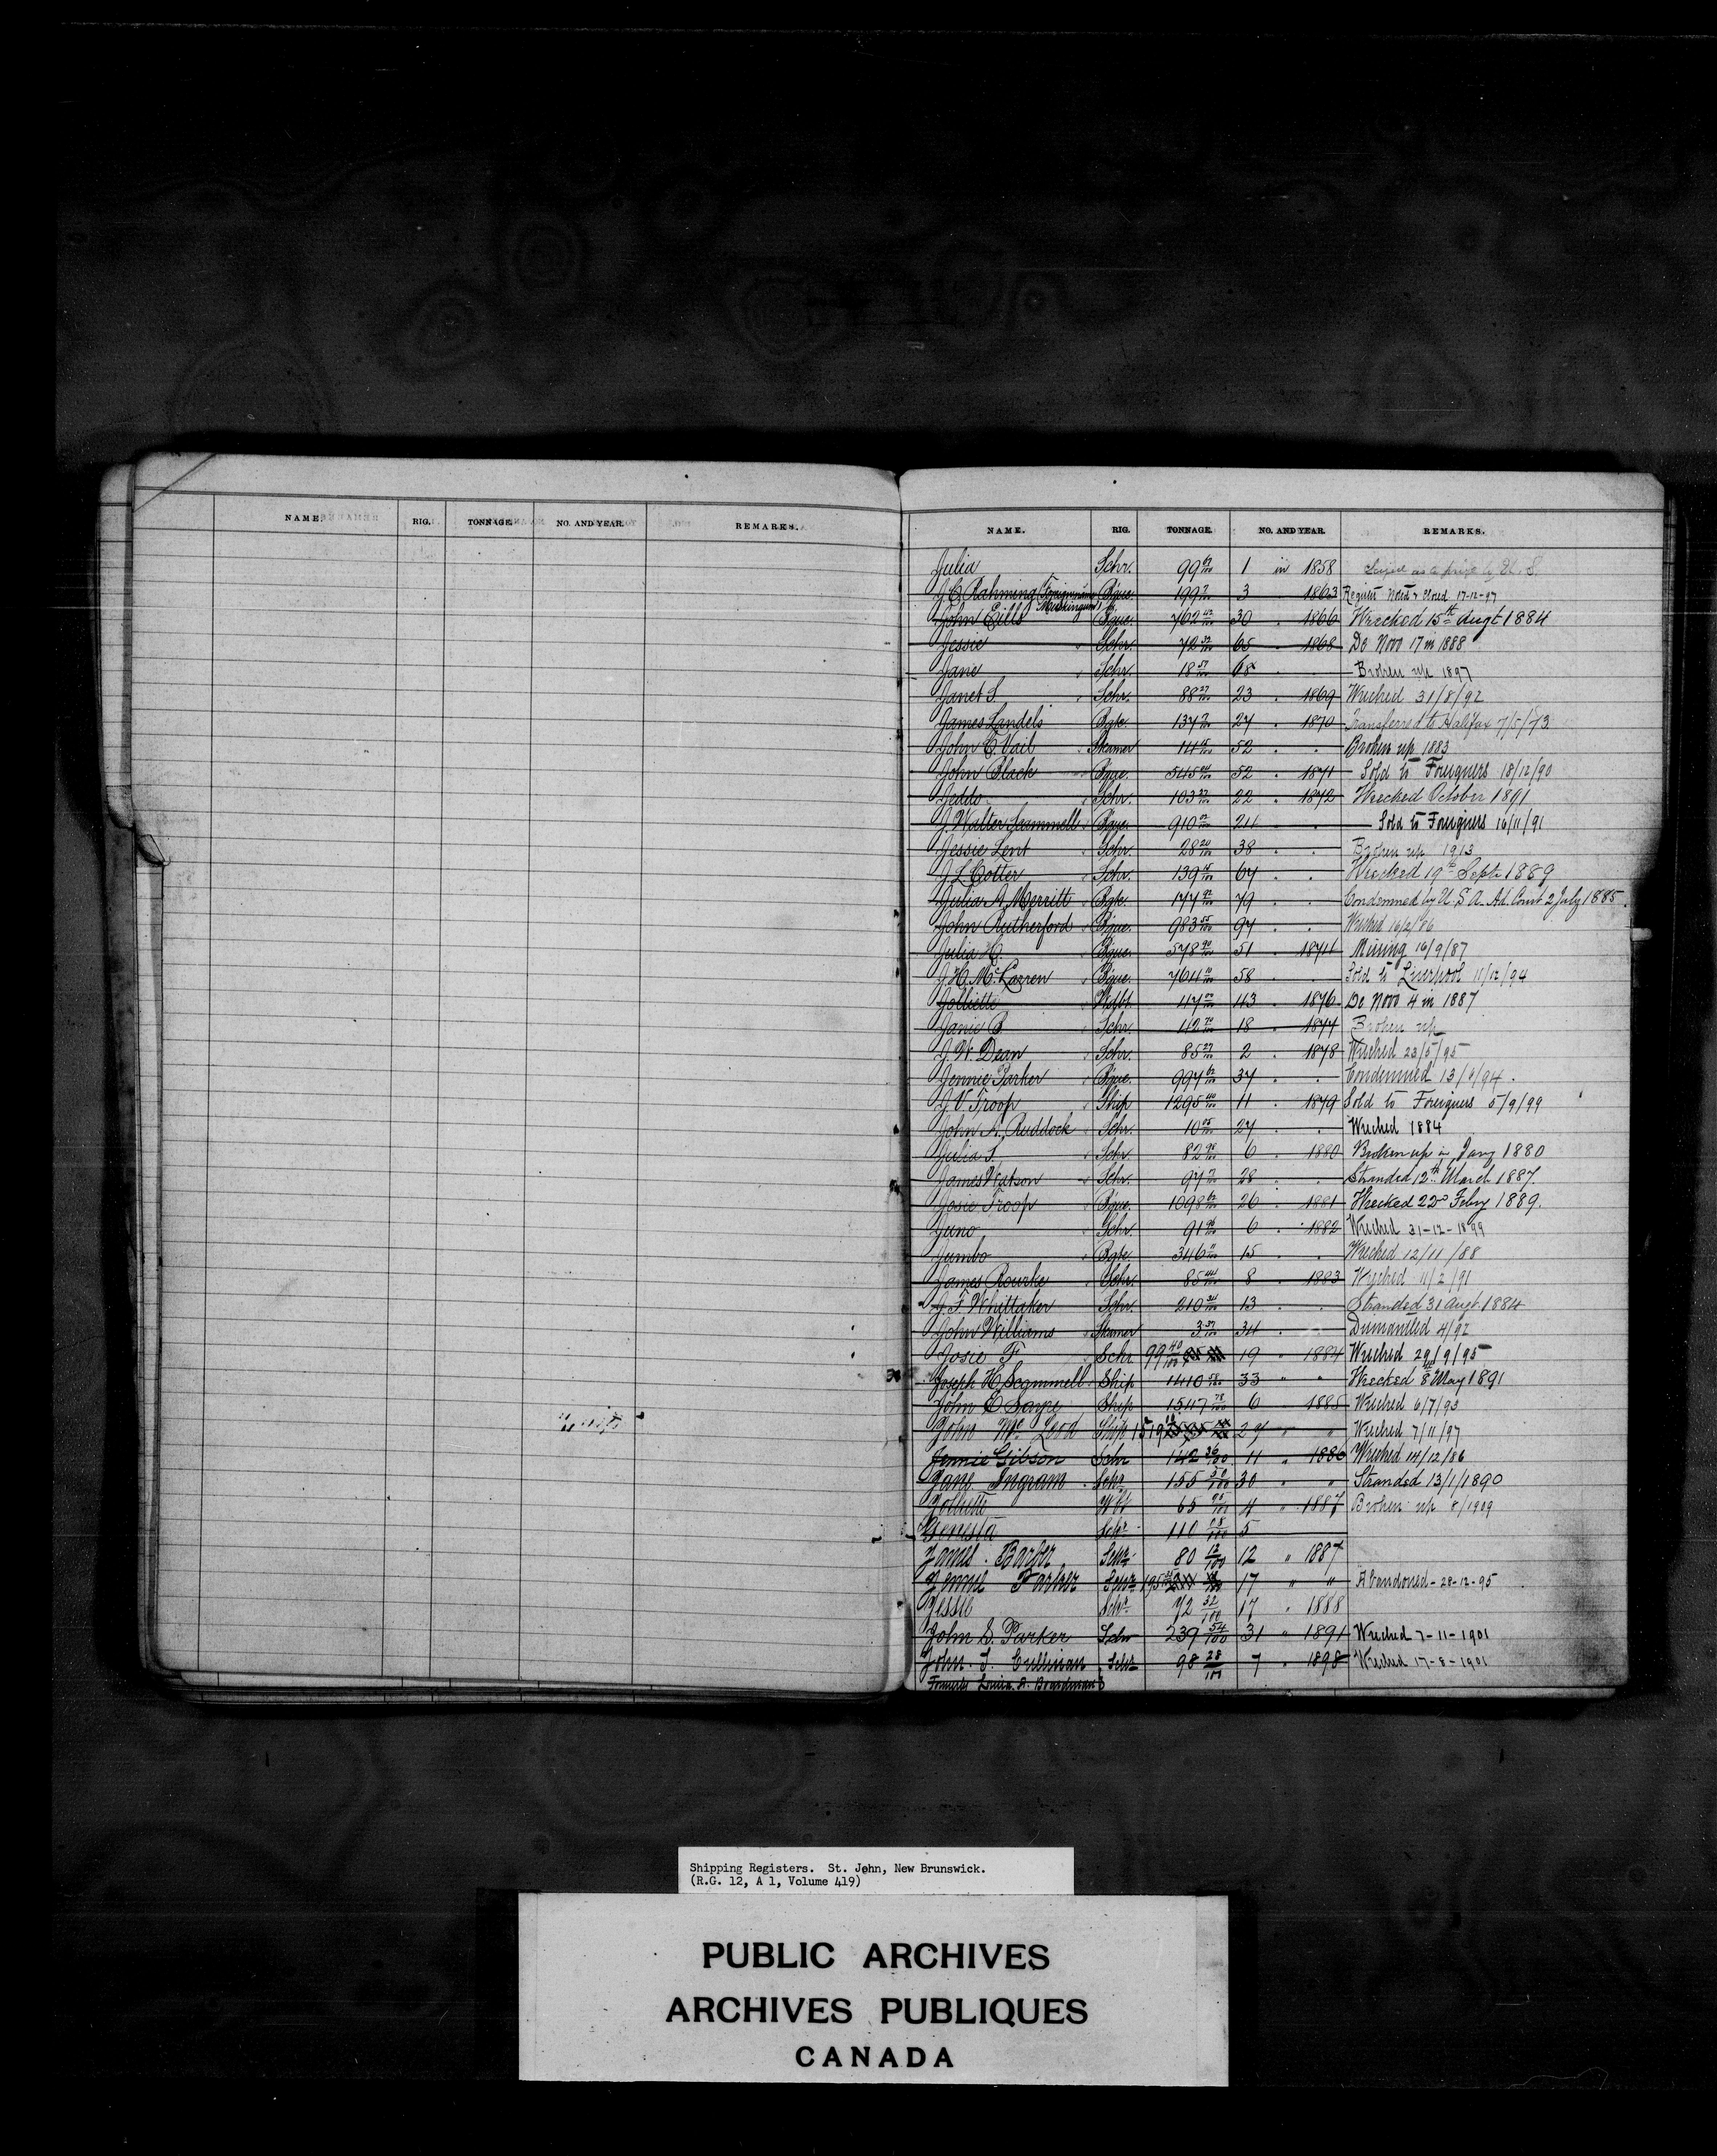 NAME. RIG. TONNAGE. NO. AND YEAR. REMARKS.
NAME. RIG. TONNAGE. NO. AND YEAR. REMARKS.
Julia Schr. 99 1 in 1858 Seized as a prize by U. S.
J. C. Rahming (Foreign name Bque. 199 3 " 1863 Register Noted & Closed 17-12-97
Muskingum)
John Eills Bque. 762 42/100 30 " 1866 Wrecked 15th Augt 1884
Jessie Schr. 72 52/100 65 " 1868 De Novo 17 in 1888
Jane Schr. 18 57/100 68 " " Broken up 1897
Janet S. Schr. 88 27/100 23 " 1869 Wrecked 31/8/92
James Landels Bgte. 137 24 " 1870 Transferred to Halifax 7/5/73
John T. Vail Steamer 52 " " Broken up 1883
John Black Bque. 545 52 " 1871 Sold to Foreigners 18/12/90
Jeddo Schr. 103 22 " 1872 Wrecked October 1891
J. Walter Scammell Bque. 910 24 " " Sold to Foreigners 16/11/91
Jessie Lent Schr. 28 20/100 38 " " Broken up 1913
J. L. Cotter Schr. 139 67 " " Wrecked 19th Sept. 1889
Julia A. Merritt Bgte. 177 79 " " Condemned by U. S. A. Ad. Court 2 July 1885.
John Rutherford Bque. 983 55/100 97 " " Wrecked 16/2/86
Julia H. Bque. 578 51 " 1874 Missing 16/9/87
J. H. McLarren Bque. 764 58 " Sold to Liverpool 11/12/94
Jolliette Wdbt 47 43 " 1876 De Novo 4 in 1887
Janie B Schr. 42 18 " 1877 Broken up
J. W. Dean Schr. 85 27/100 2 " 1878 Wrecked 23/5/95
Jennie Parker Bque. 997 62/100 37 " " Condemned 13/6/94.
J. V. Troop Ship 1295 40/100 11 " 1879 Sold to Foreigners 5/9/99
John A. Ruddock Schr. 10 27 " " Wrecked 1884
Julia S. Schr. 82 98/100 6 " 1880 Broken up in Jany 1880
James Watson Schr. 97 28 " " Stranded 12th March 1887.
Josie Troop Bque. 1098 62/100 26 " 1881 Wrecked 22d Feby 1889.
Juno Schr. 91 96/100 6 " 1882 Wrecked 31-12-1899
Jumbo Bgte. 346 15 " " Wrecked 12/11/88
James Rourke Schr. 85 44/100 8 " 1883 Wrecked 11/2/91
J. F. Whittaker Schr. 210 34/100 13 " " Stranded 31 Augt. 1884
John Williams Steamer 3 34 " Dismantled 4/92
Josie F Schr 99 40/100 19 " 1884 Wrecked 29/9/95
Joseph H. Scammell Ship 1410 58/100 33 " " Wrecked 8th May 1891
John E. Sayre Ship 1547 78/100 6 " 1885 Wrecked 6/7/93
John McLeod Ship 1519 29 " " Wrecked 7/11/97
Jennie Gibson Schr 142 36/100 11 " 1886 Wrecked 14/12/86
Jane Ingram Schr. 155 50/100 30 " " Stranded 13/1/1890
Joliette Wbt 65 95/100 4 " 1887 Broken up 8/1909
Genesta Schr 110 08/100 5
James Barber Schr 80 12/100 12 " 1887
Jennie Parker Schr 195 17 " " Abandoned - 28-12-95
Jessie Schr 72 52/100 17 " 1888
John S. Parker Schr 239 54/100 31 " 1891 Wrecked 7-11-1901
John J. Cullinan Schr 98 28/100 7 " 1898 Wrecked 17-8-1901
Formerly Louisa A. Boardman
Shipping Registers. St. John, New Brunswick.
(R.G. 12, A 1, Volume 419)
PUBLIC ARCHIVES
ARCHIVES PUBLIQUES
CANADA